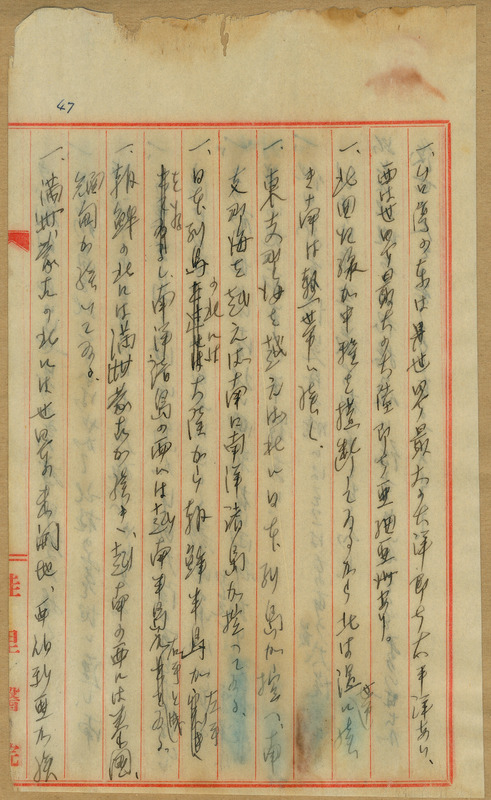 47
一、台湾の東は世界最大の大洋、即ち太平洋あり、
西は世界最大の大陸即ち亜細亜洲あり。
一、北回帰線が中程を横断してゐるから北は温に接
し南は熱帯に接し、
一、東支那海を越えれば北に日本列島が控へ、南
支那海を越えれば南に南洋諸島が控へてゐる。
一、日本列島の北には大陸から朝鮮半島が
南洋諸島の西には越南半島
一、朝鮮の北には満洲蒙古が接き、越南の西には泰国、
緬甸が接いてゐる。
一、満洲蒙古の北には世界の未開地、西伯利亜が接
醫院